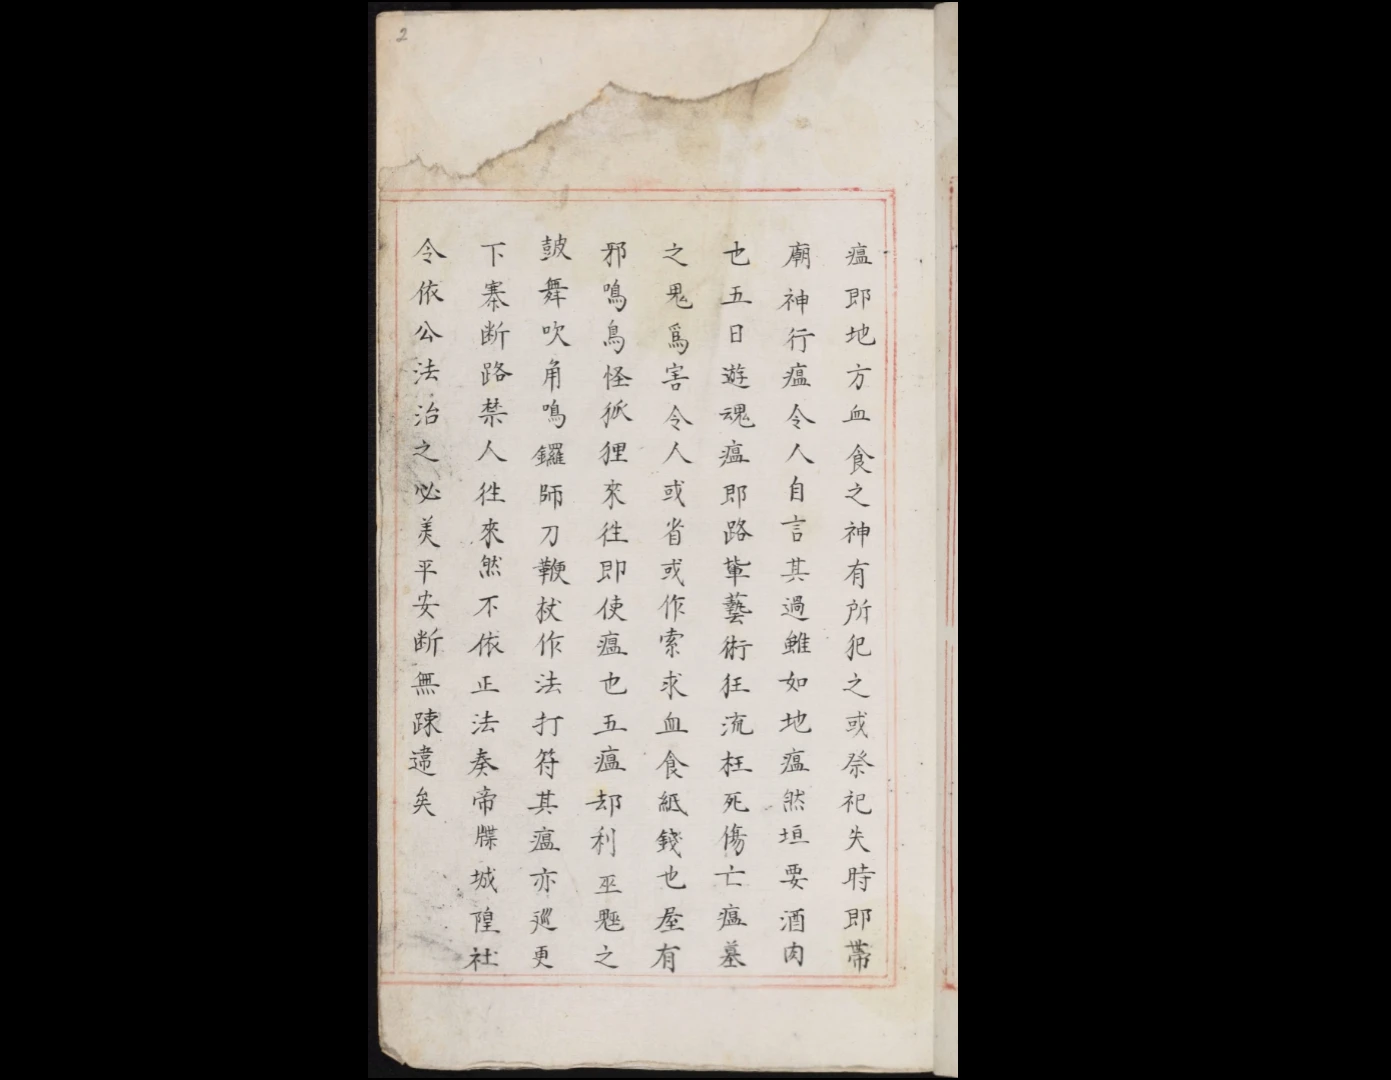 2
瘟即地方血食之神有所犯之或祭祀失時即帶
廟神行瘟令人自言其過雖如地瘟然垣要酒肉
也五日遊魂瘟即路輂藝術狂流枉死傷亡瘟墓
之鬼爲害令人或省或作索求血食紙錢也屋有
邪鳴鳥怪狐狸來徃即使瘟也五瘟却利巫魘之
皷舞吹角鳴鑼師刀鞭杖作法打符其瘟亦廵更
下寨断路禁人徃來然不依正法奏帝牒城隍社
令依公法治之必美平安断無踈違矣